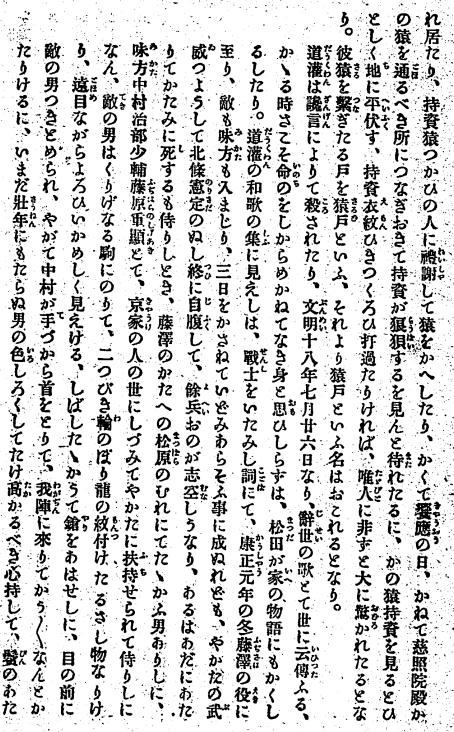 れ居たり、持資猿つかひの人に禮謝して猿をかへしたり、かくて饗應の日、かねて慈照院殿か
の猿を通るべき所につなぎおきて持資が狼狽するを見んと待れたるに、かの猿持資を見るとひ
としく地に平伏す、持資衣紋ひきつくろひ打過たりければ、唯人に非ずと大に驚かれたるとな
り。彼猿を繋ぎたる戸を猿戸といふ、それより猿戸といふ名はおこれるとなり。
道灌は讒言によりて殺されたり、文明十八年七月廿六日なり、辭世の歌とて世に云傳ふる、
かゝる時さこそ命のをしからめかねてなき身と思ひしらずは、松田が家の物語にもかくし
るしたり。道灌の和歌の集に見えしは、戰士をいたみし詞にて、康正元年の冬藤澤の役に
至り、敵も味方も入まじり、三日をかさねていどみあらそふ事に成ぬれども、やかたの武
威つようして北條憲定のぬし終に自腹して、餘兵おのが志空しうなり、あるはあだにあた
りてかたみに死するも侍りしとき、藤澤のかたへの松原のむれにてたゝかふ男ありしに、
味方中村治部少輔藤原重顯とて、京家の人の世にしづみてやかたに扶持せられて侍りしに
なん、敵の男はくりげなる駒にのりて、二つびき輪のぼり龍の紋付けたるさし物なりけ
り、遠目ながらよろひいかめしく見えける、しばしたゝかうて鎗をあはせしに、目の前に
敵の男つきとめられ、やがて中村が手づから首をとりて、我陣に來りてかう〳〵なんとか
たりけるに、いまだ壯年にもたらぬ男の色しろくしてたけ高かるべき心持して、鬢のあた